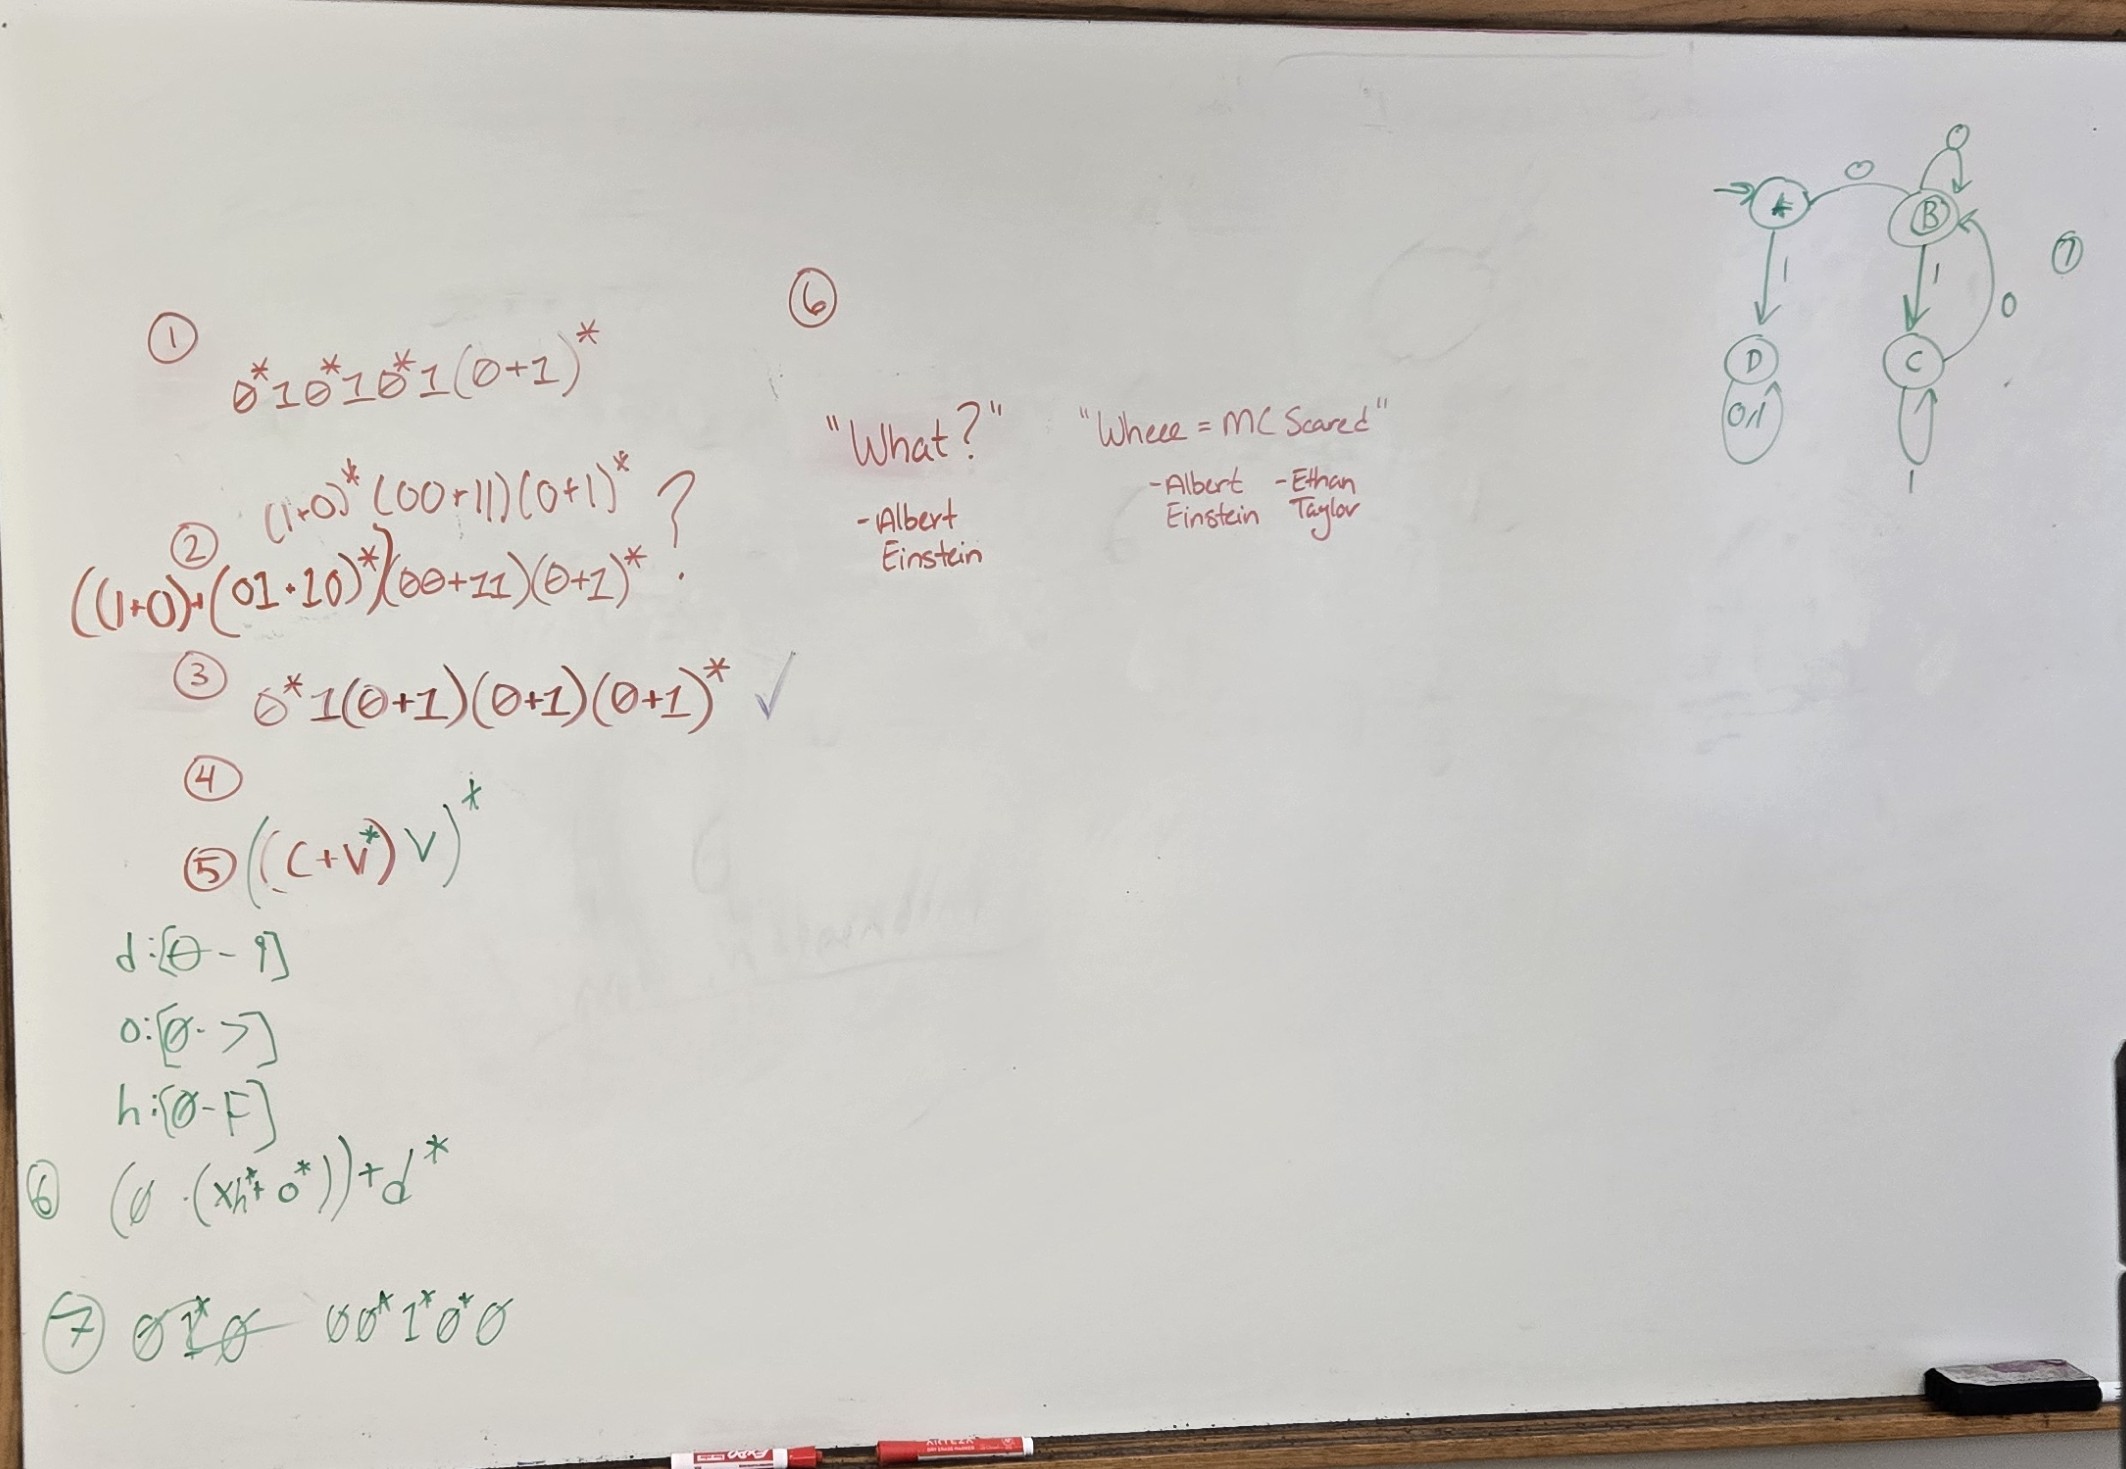 ①
0*10*10*1(0+1)*
(1+0)*(00+11)(0+1)* ?
②
((1+0)+(01+10)*)(00+11)(0+1)*
③ 0*1(0+1)(0+1)(0+1)* ✓
④
⑤ ((C+V*)V)*
d:[0-9]
o:[0->]
h:[0-F]
⑥ (0·(xh*+o*))+d*
⑦ 01*0 00*1*0*0
⑥
"What?"
-Albert
Einstein
"Wheee = MC Scared"
-Albert
Einstein
-Ethan
Taylor
A 0 B 0
1 1 0
D C
0,1
1
⑦
EXPO
ARTEZA